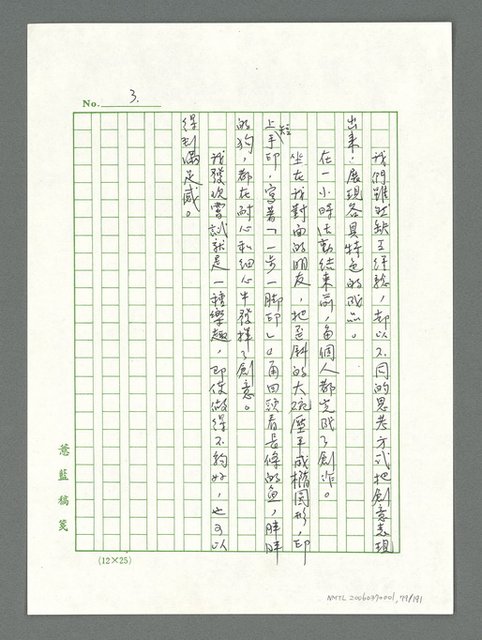 No. 3.
我們雖然缺乏經驗，却以不同的思考方式把創意表現
出來，展現各具特色的成品。
在一小時活動結束前，每個人都完成了創作。
坐在我對面的朋友，把歪斜的大碗壓平成橢圓形，印
上手印，寫著「一步一脚印」。再回頭看長條的魚，胖胖
短
的狗，都在耐心和細心中發揮了創意。
我發次嘗試就是一種樂趣，即使做得不夠好，也可以
得到滿足感。
薏藍稿箋
(12×25)
NMTL 20060390001, 79/191